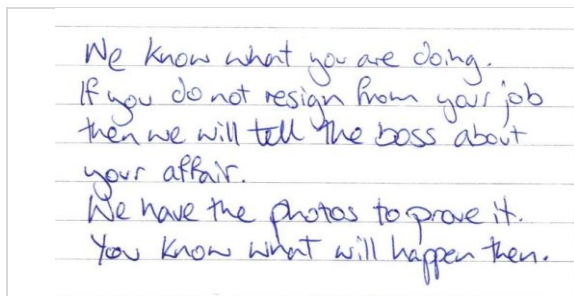 We know what you are doing.
If you do not resign from your job
then we will tell the boss about
your affair.
We have the photos to prove it.
You know what will happen then.